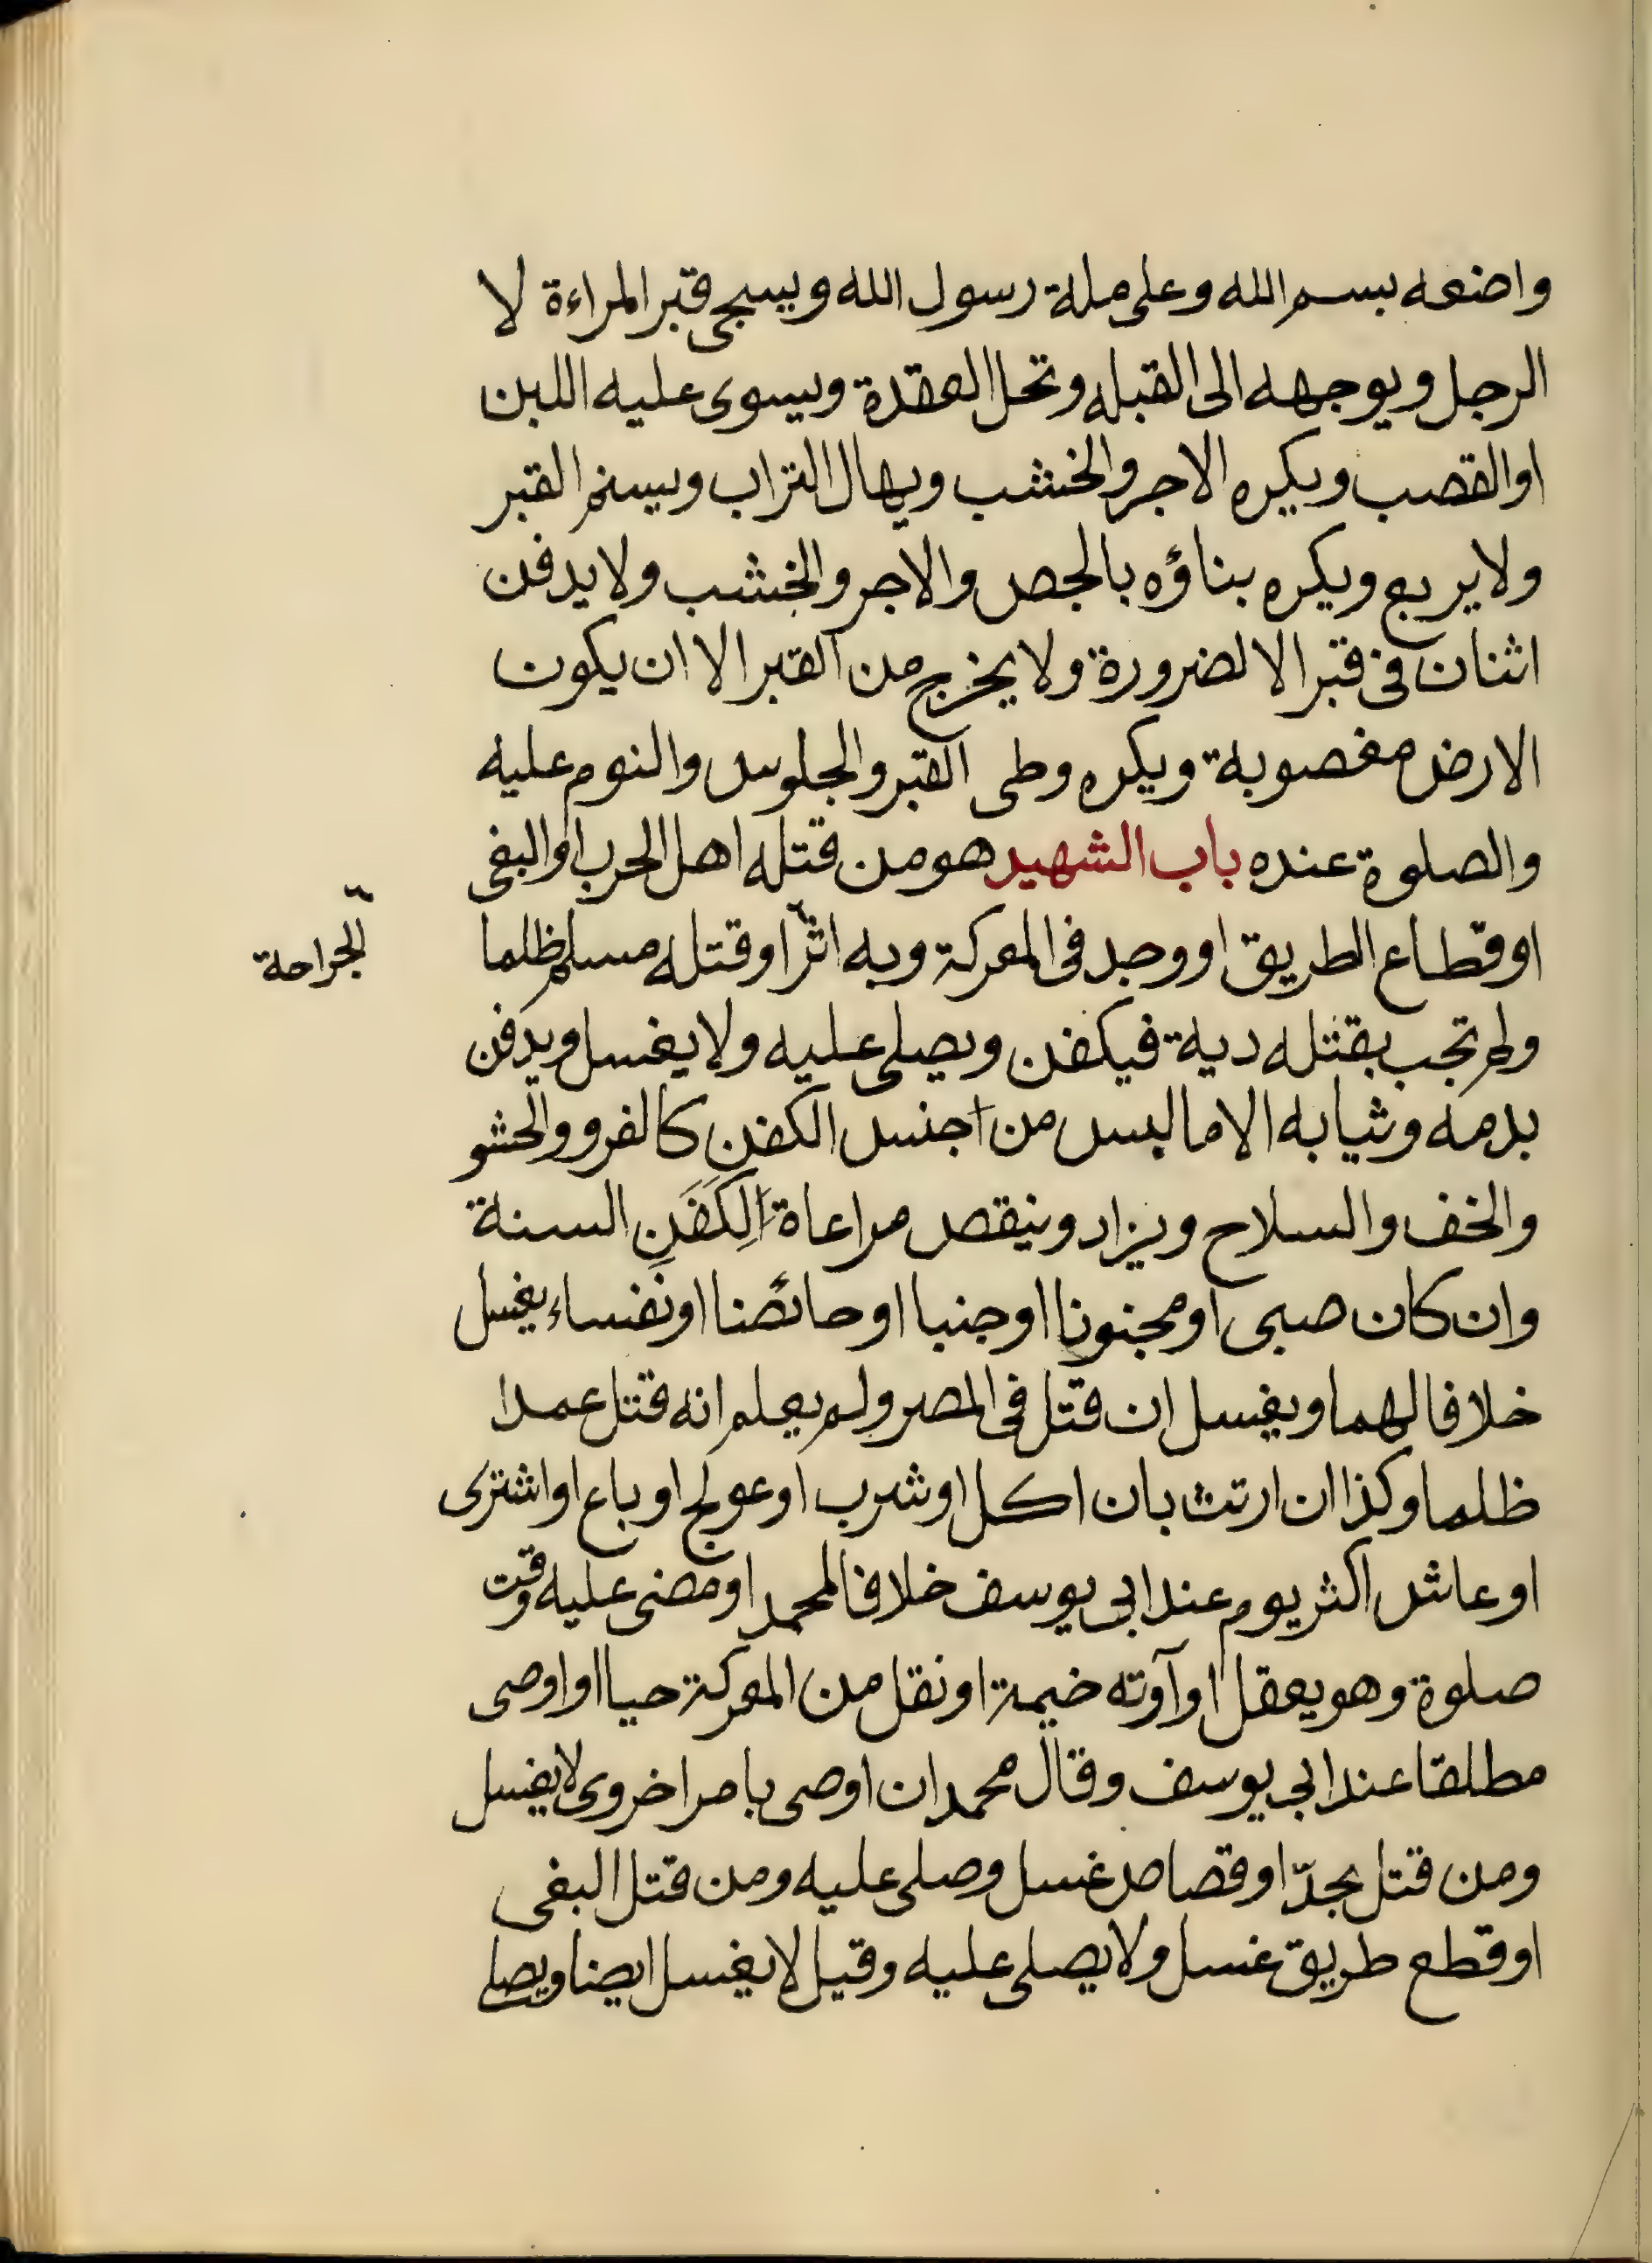 واضعه بسم الله وعلى ملة رسول الله ويسجى قبر المراءة لا
الرجل ويوجهه الى القبله وتحل العقدة ويسوى عليه اللبن
او القصب ويكره الاجر والخشب ويهال التراب ويسنم القبر
ولا يربع ويكره بناؤه بالجص والاجر والخشب ولا يدفن
اثنان فى قبر الا لضرورة ولا يخرج من القبر الا ان يكون
الارض مغصوبة ويكره وطى القبر والجلوس والنوم عليه
والصلوة عنده باب الشهيد هو من قتله اهل الحرب او البغى
او قطاع الطريق او وجد فى المعركة وبه اثر او قتله مسلم ظلما
الجراحة
ولم تجب بقتله دية فيكفن ويصلى عليه ولا يغسل ويدفن
بدمه وثيابه الا ما ليس من اجنس الكفن كالفرو والحشو
والخف والسلاح ويزاد وينقص مراعاة الكَفَنِ السنة
وان كان صبى او مجنونا او جنبا او حائضا او نفساء يغسل
خلافا لهما ويغسل ان قتل فى المصر ولم يعلم انه قتل عمدا
ظلما وكذا ان ارتث بان اكل او شرب او عولج او باع او اشترى
او عاش اكثر يوم عند ابى يوسف خلافا لمحمد او مضى عليه وقت
صلوة وهو يعقل او آوته خيمة او نقل من المعركة حيا او اوصى
مطلقا عند ابى يوسف وقال محمد ان اوصى بامر اخروى لا يغسل
ومن قتل بحدّ او قصاص غسل وصلى عليه ومن قتل البغى
او قطع طريق غسل ولا يصلى عليه وقيل لا يغسل ايضا ويصلى